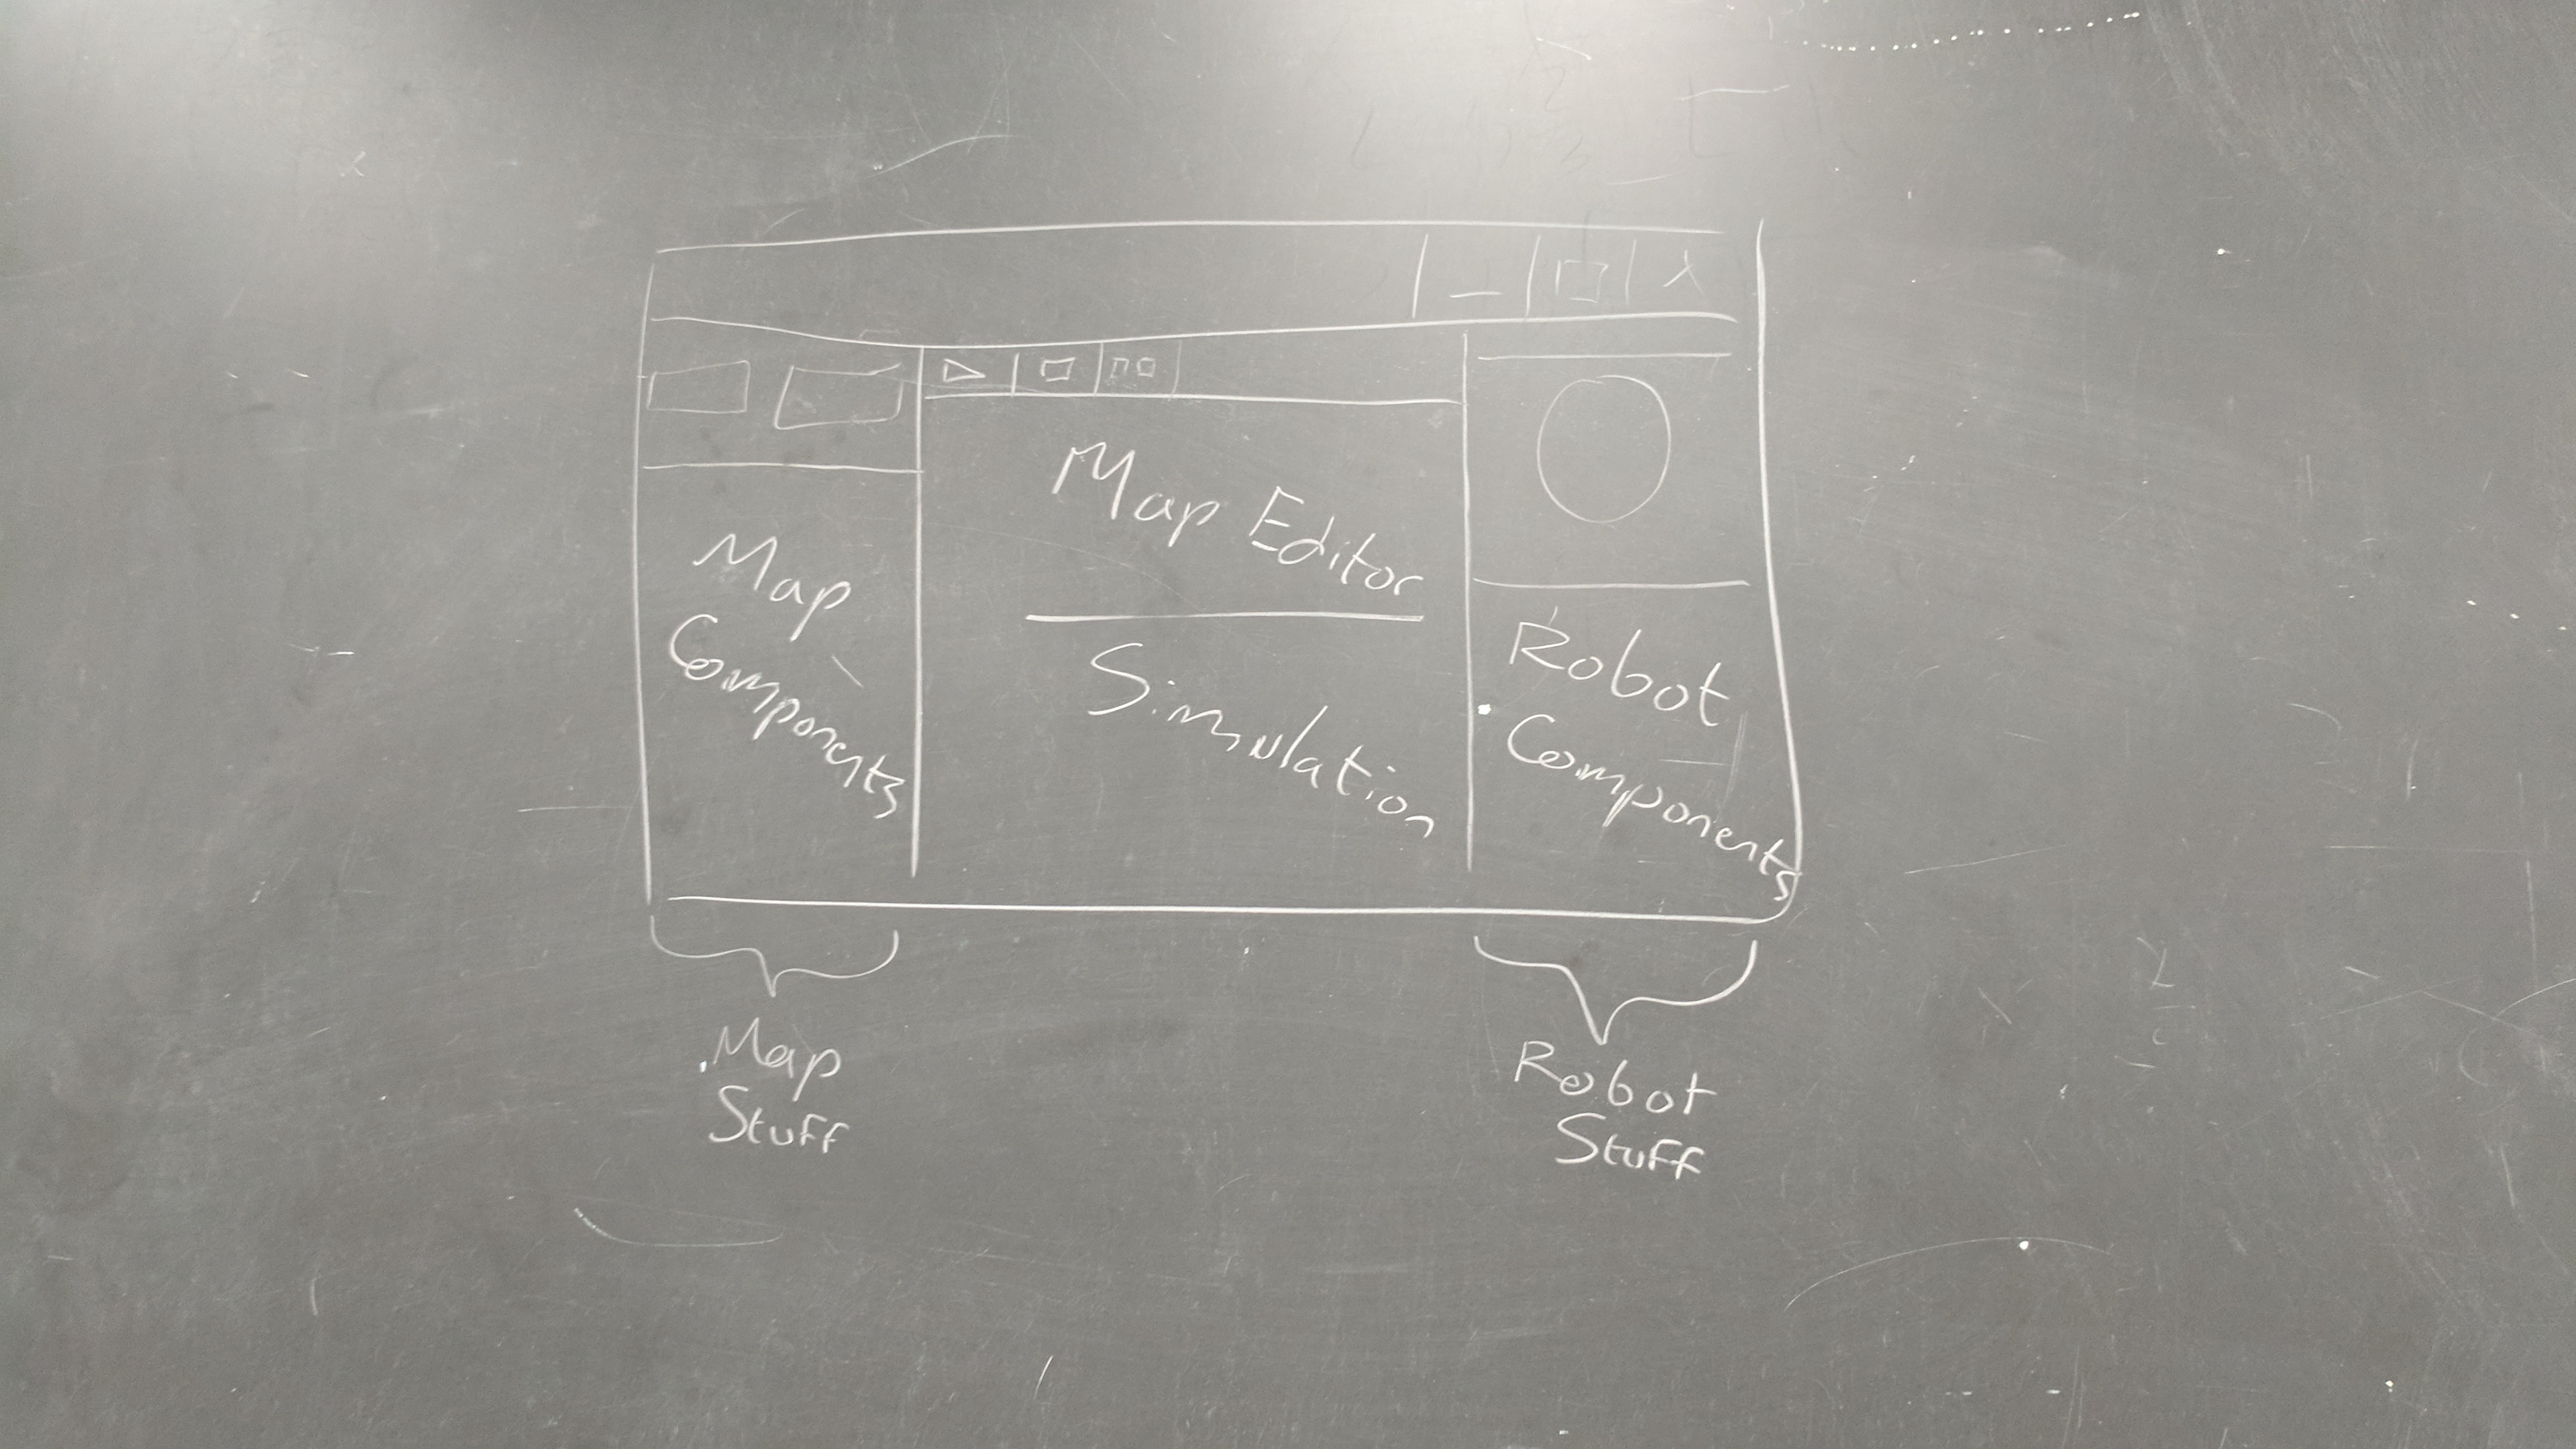 Map
Components
Map Editor
Simulation
Robot
Components
Map
Stuff
Robot
Stuff